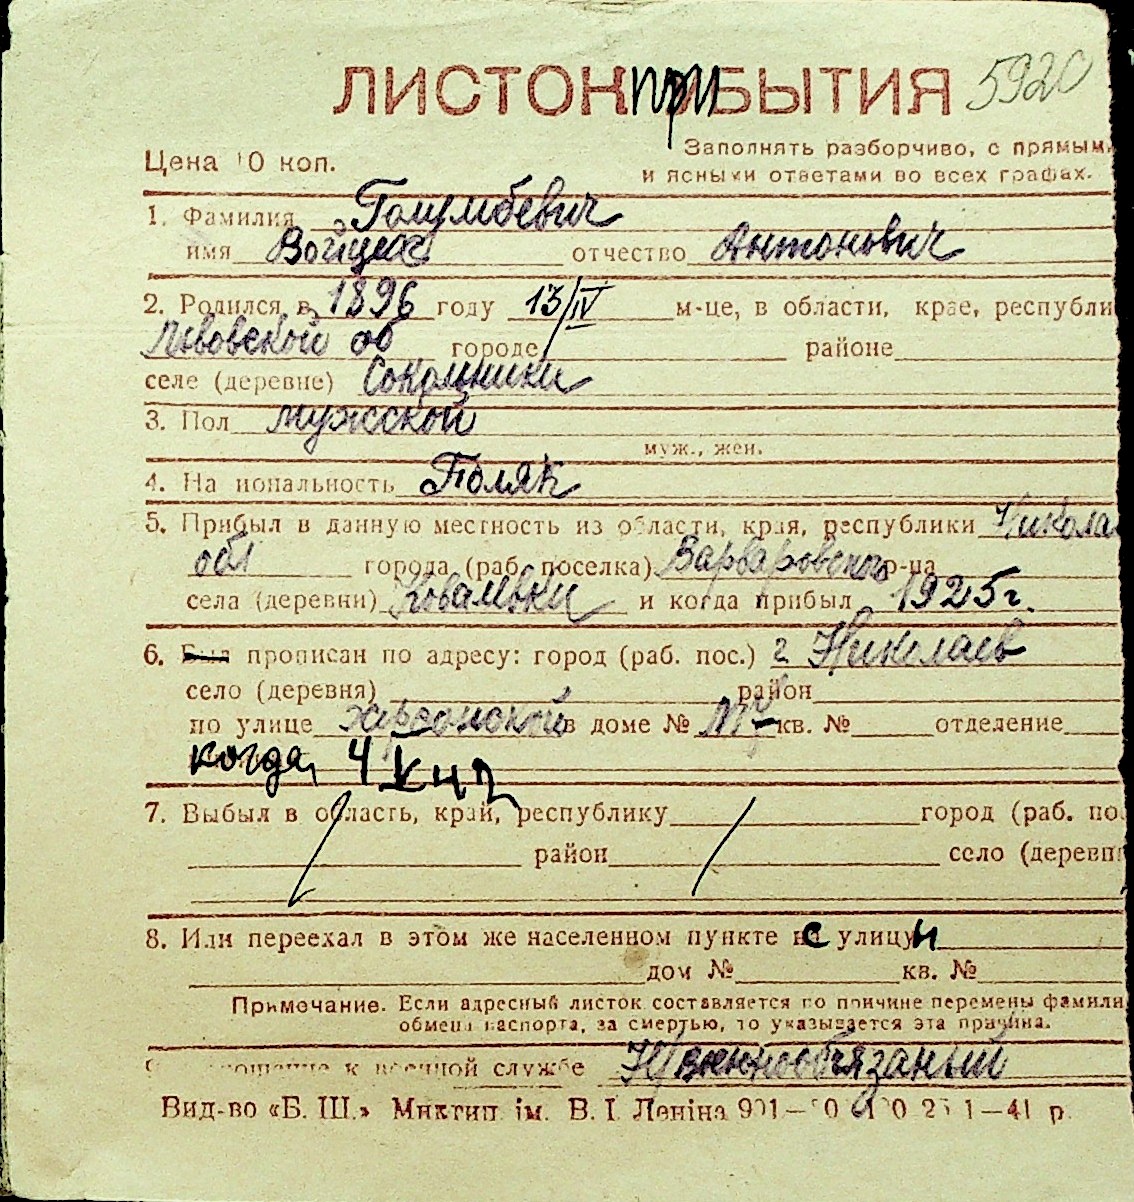 ЛИСТОК при БЫТИЯ 5920
Цена 10 коп.
Заполнять разборчиво, с прямыми
и ясными ответами во всех графах.
1. Фамилия Голумбевич
имя Войцех отчество Антонович
2. Родился в 1896 году 13/IV м-це, в области, крае, республи
Львовской об городе районе
селе (деревне)
3. Пол мужсской
муж., жен.
4. Национальность Поляк
5. Прибыл в данную местность из области, края, республики Никола
обл города (раб. поселка) Варваровского р-на
села (деревни) Ковалевки и когда прибыл 1925г.
6. Был прописан по адресу: город (раб. пос.) г. Николаев
село (деревня) район
по улице Херсонской в доме № кв. № отделение
когда, 4
7. Выбыл в область, край, республику город (раб. пос
район село (деревня
8. Или переехал в этом же населенном пункте с улицы
дом № кв. №
Примечание. Если адресный листок составляется по причине перемены фамили
обмена паспорта, за смертью, то указывается эта причина.
к военной службе военнообязаный
Вид-во «Б. Ш.» Миктип. ім. В. І. Леніна 1—41 р.